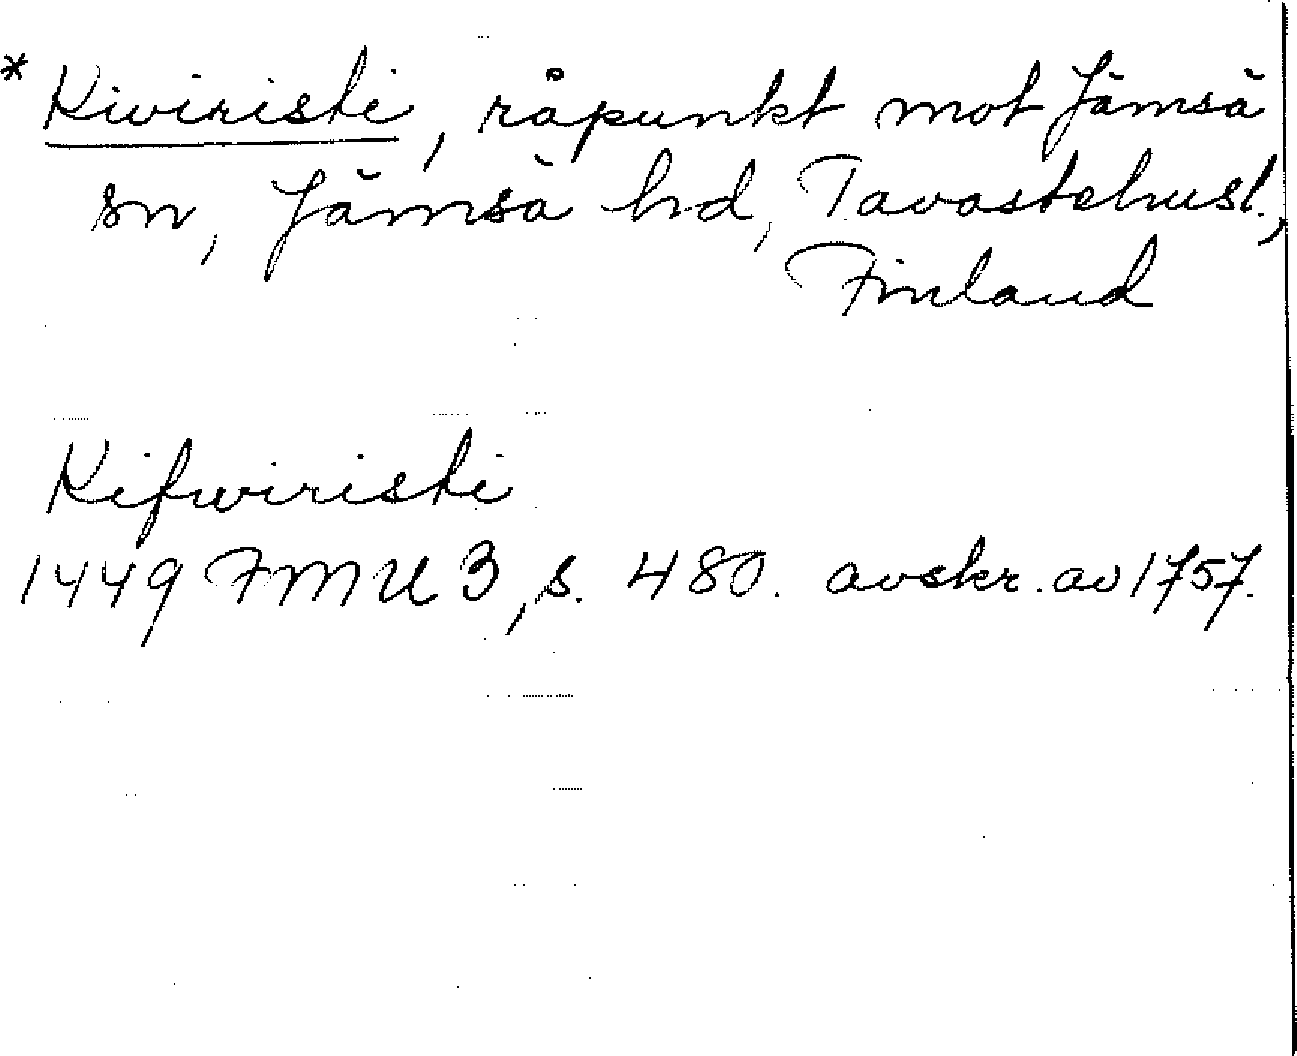 * Kiviristi, råpunkt mot Jämsä
sn, Jämsä hd, Tavastehusl.,
Finland
Kifwiristi
1449 FMU 3, s. 480. avskr. av 1757.